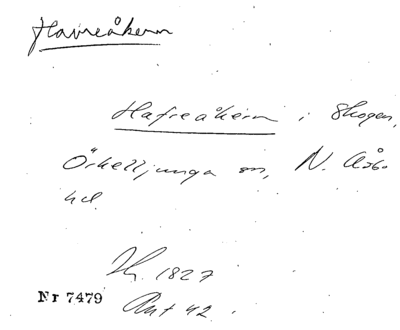 Havreåkern
Hafreåkern i Skogen,
Örkelljunga sn, N. Åsbo
hd.
Lh. 1827
Nr 7479 Akt 42